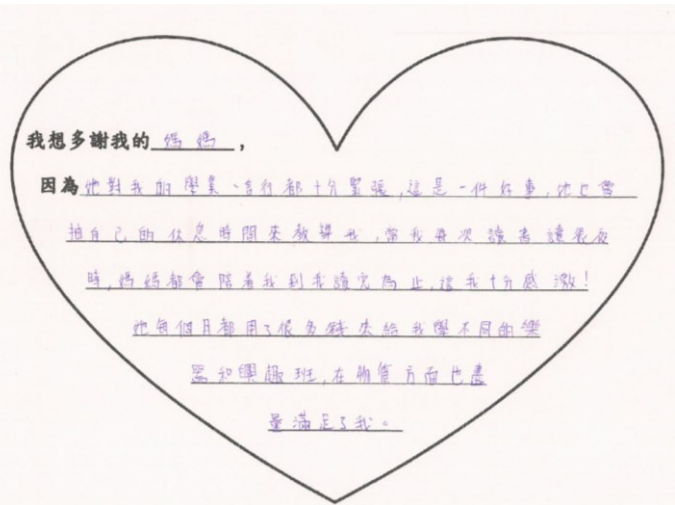 我想多謝我的媽媽,
因為她對我的學業、言行都十分緊張,這是一件好事,她也會
抽自己的休息時間來教導我,當我每次讀書讀很夜
時,媽媽都會陪着我到我讀完為止,這我十分感激!
她每個月都用了很多錢來給我學不同的樂
器和興趣班,在物質方面也盡
量滿足了我。